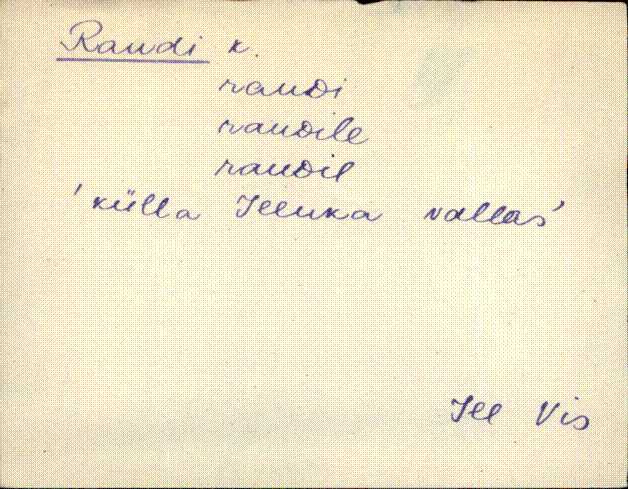 Raudi k.
raudi
raudile
raudil
'külla Illuka vallas'
Ill Vis